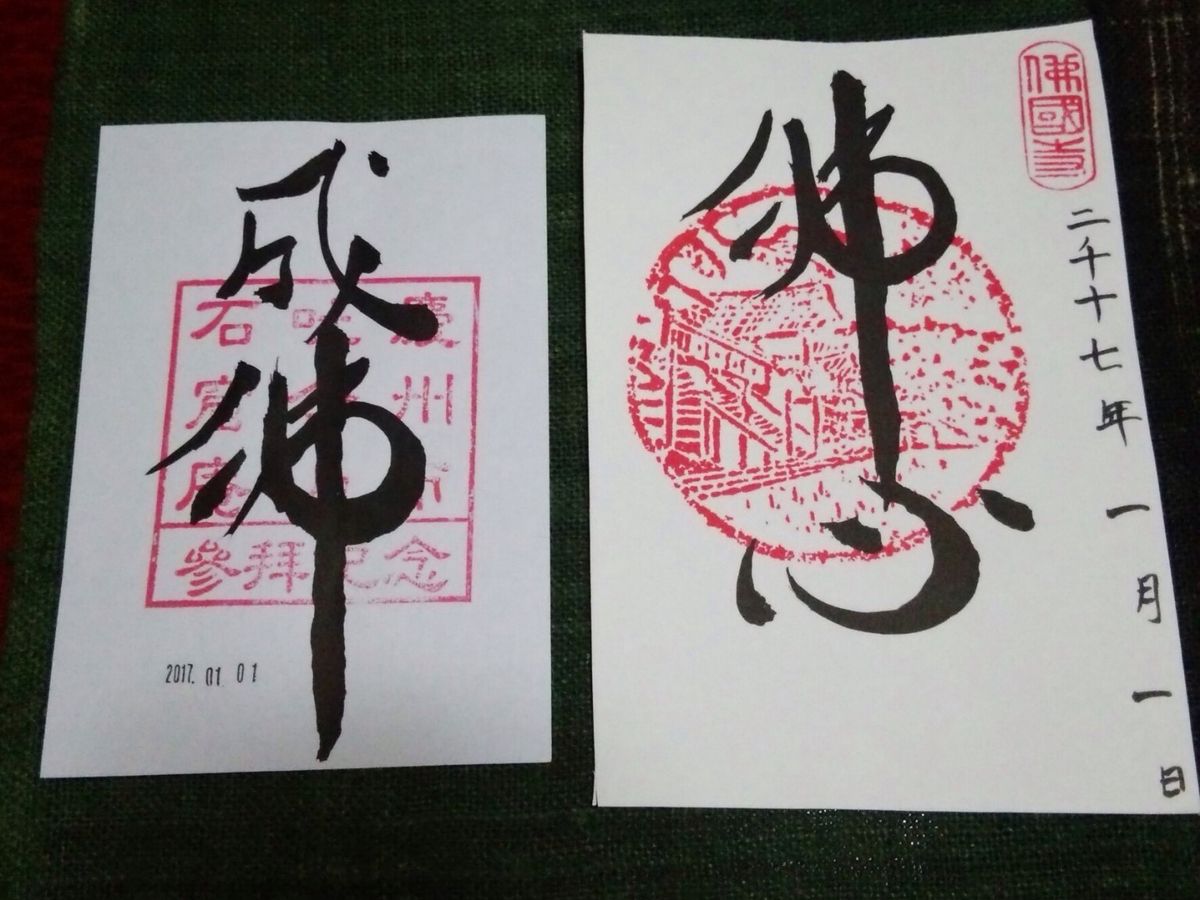 成佛
慶州市
吐含山
石窟庵
參拜記念
2017. 01. 01
佛國寺
二千十七年一月一日
佛心